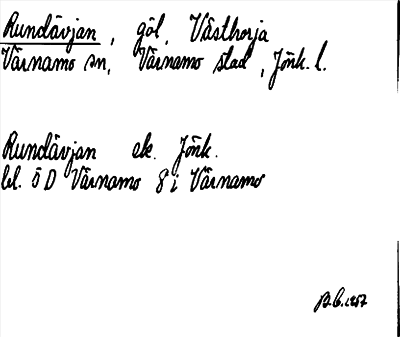 Rundävjan, göl, Västhorja
Värnamo sn, Värnamo stad, Jönk. l.
Rundävjan ek. Jönk.
bl. 5 D Värnamo 8 i Värnamo